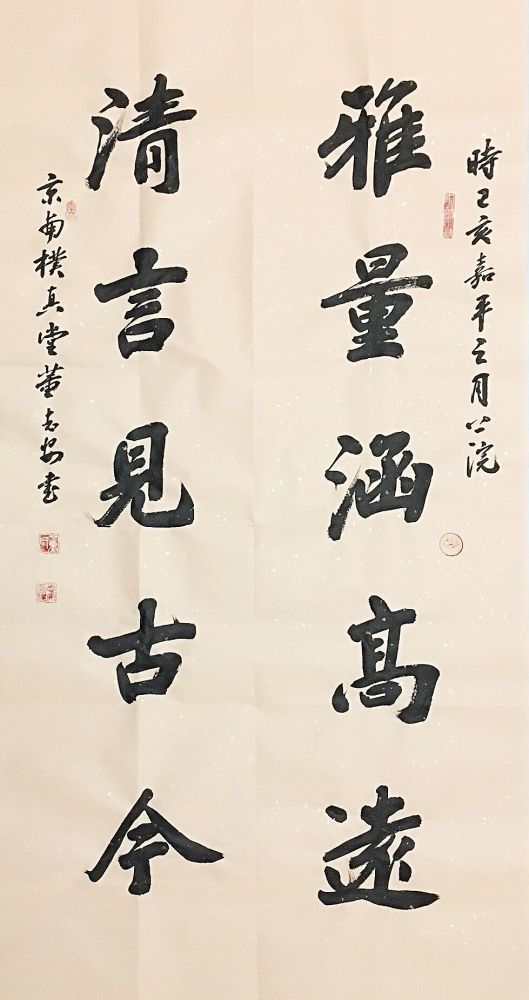 時己亥嘉平之月公院
雅量涵高遠
清言見古今
京南樸真堂董志安書